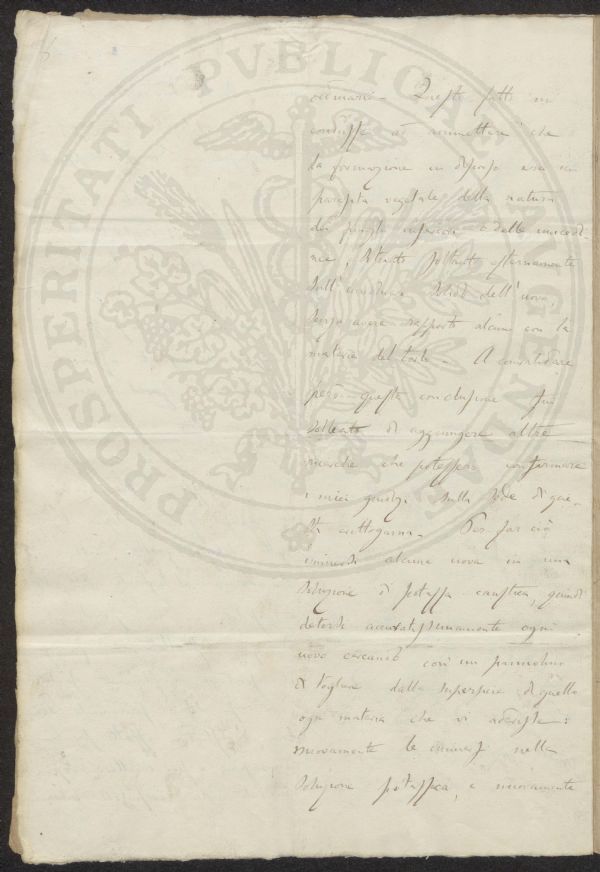 PROSPERITATI PVBLICAE AVGENDAE
Questi fatti mi
condusse ad ammettere che
la formazione in discorso era un
parassita vegetale della natura
dei funghi inferiori o delle mucedi-
nee, situato soltanto esternamente
sull' involucro solido dell' uovo,
senza avere rapporto alcuno con la
materia del tuorlo - A convalidare
però questa conclusione fui
sollecito di aggiungere altre
ricerche che potessero confirmare
i miei giudizj sulla sede di que-
sta crittogama. Per far ciò
immersi alcune uova in una
soluzione di potassa caustica, quindi
detersi accuratissimamente ogni
uovo cercando con un pannolino
di togliere dalla superficie di quello
ogni materia che vi aderisse:
nuovamente le immersi nella
soluzione potassica, e nuovamente